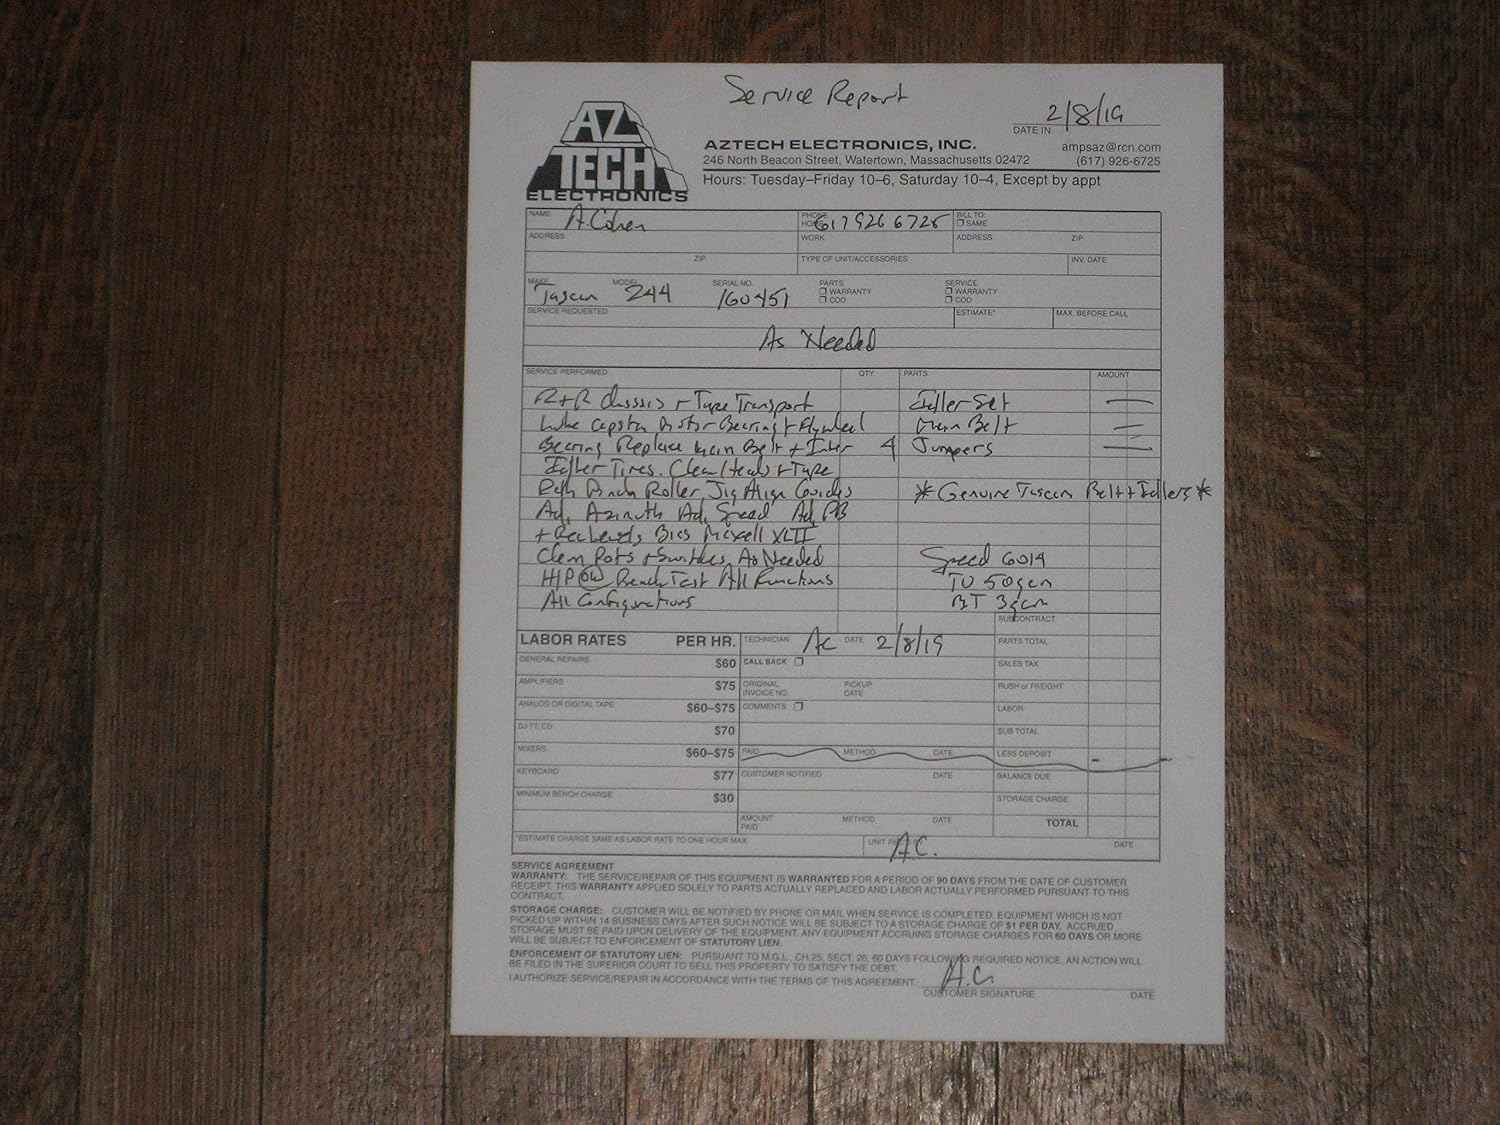 Service Report
AZ
TECH
ELECTRONICS
2/8/19
DATE IN
AZTECH ELECTRONICS, INC.
246 North Beacon Street, Watertown, Massachusetts 02472
ampsaz@rcn.com
(617) 926-6725
Hours: Tuesday–Friday 10–6, Saturday 10–4, Except by appt
NAME A. Cohen PHONE HOME 617 926 6725 BILL TO: SAME
ADDRESS WORK ADDRESS ZIP
ZIP TYPE OF UNIT/ACCESSORIES INV. DATE
MAKE Tascam MODEL 244 SERIAL NO. 160451 PARTS WARRANTY COD SERVICE WARRANTY COD
SERVICE REQUESTED ESTIMATE* MAX. BEFORE CALL
As Needed
SERVICE PERFORMED QTY. PARTS AMOUNT
R+R Chassis + Tape Transport Idler Set —
Lube Capstan Motor Bearing + Flywheel Main Belt —
Bearing Replace Main Belt + Inter 4 Jumpers —
Idler Tires. Clean Heads + Tape
Path Pinch Roller, Jig Align Guides * Genuine Tascam Belt + Idlers *
Ad, Azimuth Ad, Speed Ad, PB
+ Rec Levels, Bias Maxell XLII
Clean Pots + Switches, As Needed Speed 6014
H/P OK Bench Test All Functions TU 50gcm
All Configurations BT 3gcm
SUBCONTRACT
LABOR RATES PER HR. TECHNICIAN AC DATE 2/8/19 PARTS TOTAL
GENERAL REPAIRS $60 CALL BACK SALES TAX
AMPLIFIERS $75 ORIGINAL INVOICE NO. PICKUP DATE RUSH or FREIGHT
ANALOG OR DIGITAL TAPE $60–$75 COMMENTS LABOR
DJ TT, CD $70 SUB TOTAL
MIXERS $60–$75 PAID METHOD DATE LESS DEPOSIT -
KEYBOARD $77 CUSTOMER NOTIFIED DATE BALANCE DUE
MINIMUM BENCH CHARGE $30 STORAGE CHARGE
AMOUNT PAID METHOD DATE TOTAL
*ESTIMATE CHARGE SAME AS LABOR RATE TO ONE HOUR MAX. UNIT A.C. DATE
SERVICE AGREEMENT
WARRANTY: THE SERVICE/REPAIR OF THIS EQUIPMENT IS WARRANTED FOR A PERIOD OF 90 DAYS FROM THE DATE OF CUSTOMER
RECEIPT. THIS WARRANTY APPLIED SOLELY TO PARTS ACTUALLY REPLACED AND LABOR ACTUALLY PERFORMED PURSUANT TO THIS
CONTRACT.
STORAGE CHARGE: CUSTOMER WILL BE NOTIFIED BY PHONE OR MAIL WHEN SERVICE IS COMPLETED. EQUIPMENT WHICH IS NOT
PICKED UP WITHIN 14 BUSINESS DAYS AFTER SUCH NOTICE WILL BE SUBJECT TO A STORAGE CHARGE OF $1 PER DAY. ACCRUED
STORAGE MUST BE PAID UPON DELIVERY OF THE EQUIPMENT. ANY EQUIPMENT ACCRUING STORAGE CHARGES FOR 60 DAYS OR MORE
WILL BE SUBJECT TO ENFORCEMENT OF STATUTORY LIEN.
ENFORCEMENT OF STATUTORY LIEN: PURSUANT TO M.G.L., CH.25, SECT. 26, 60 DAYS FOLLOWING REQUIRED NOTICE, AN ACTION WILL
BE FILED IN THE SUPERIOR COURT TO SELL THIS PROPERTY TO SATISFY THE DEBT.
I AUTHORIZE SERVICE/REPAIR IN ACCORDANCE WITH THE TERMS OF THIS AGREEMENT. A.C.
CUSTOMER SIGNATURE DATE